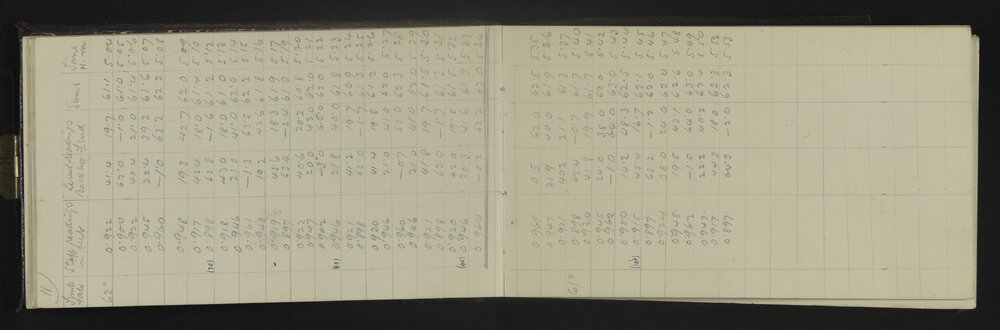 11
Temp Fah
Staff readings in feet
Level readings
Sums
Time
H. m
62° 0.922 41.4 19.7 61.1 5.04
0.900 62.0 -1.0 61.0 5.05
0.922 40.4 21.0 61.4 5.06
0.945 22.4 39.2 61.6 5.07
0.960 -1.0 63.2 62.2 5.08
0.948 19.3 42.7 62.0 5.09
0.917 43.4 18.0 61.4 5.10
(70) 0.898 62.8 -1.6 61.2 5.12
0.918 43.0 18.0 61.0 5.13
0.946 21.0 41.0 62.0 5.14
0.961 -1.3 63.5 62.2 5.15
0.948 19.2 42.6 61.8 5.16
43.6 18.3 61.9 5.17
0.898 63.4 -2.4 61.0 5.19
0.922 40.6 20.2 60.8 5.20
0.947 20.0 42.0 62.0 5.21
0.962 -3.0 65.0 62.0 5.22
(80) 0.946 21.8 40.0 61.8 5.23
0.921 41.2 19.7 60.9 5.24
0.898 63.0 -1.7 61.3 5.25
0.920 41.4 19.8 61.2 5.26
0.946 21.0 41.0 62.0 5.27
0.960 -0.7 63.0 62.3 5.28
0.946 22.0 40.0 62.0 5.29
0.921 41.8 19.7 61.5 5.30
0.898 63.0 -1.7 61.3 5.31
0.920 42.0 19.5 61.5 5.32
(90) 0.946 20.3 41.6 61.9 5.33
0.960 -0.2 63.2 63.0 5.34
0.961 0.5 62.0 62.5 5.35
0.947 21.9 40.0 61.9 5.36
0.921 40.2 21.1 61.3 5.37
61° 0.898 62.6 -1.7 60.9
0.920 41.8 19.9 61.7 5.41
0.945 24.0 38.0 62.0 5.42
0.962 -1.0 64.0 63.0 5.43
0.950 14.2 48.3 62.5 5.44
(100) 0.915 45.4 16.7 62.1 5.45
0.897 63.2 -1.2 62.0 5.46
0.924 38.0 24.0 62.0 5.47
0.948 19.5 43.1 62.6 5.48
0.962 -1.0 64.0 63.0 5.49
0.947 22.2 40.2 62.4 5.50
0.917 44.3 18.0 62.3 5.52
0.897 64.3 -2.0 62.3 5.53